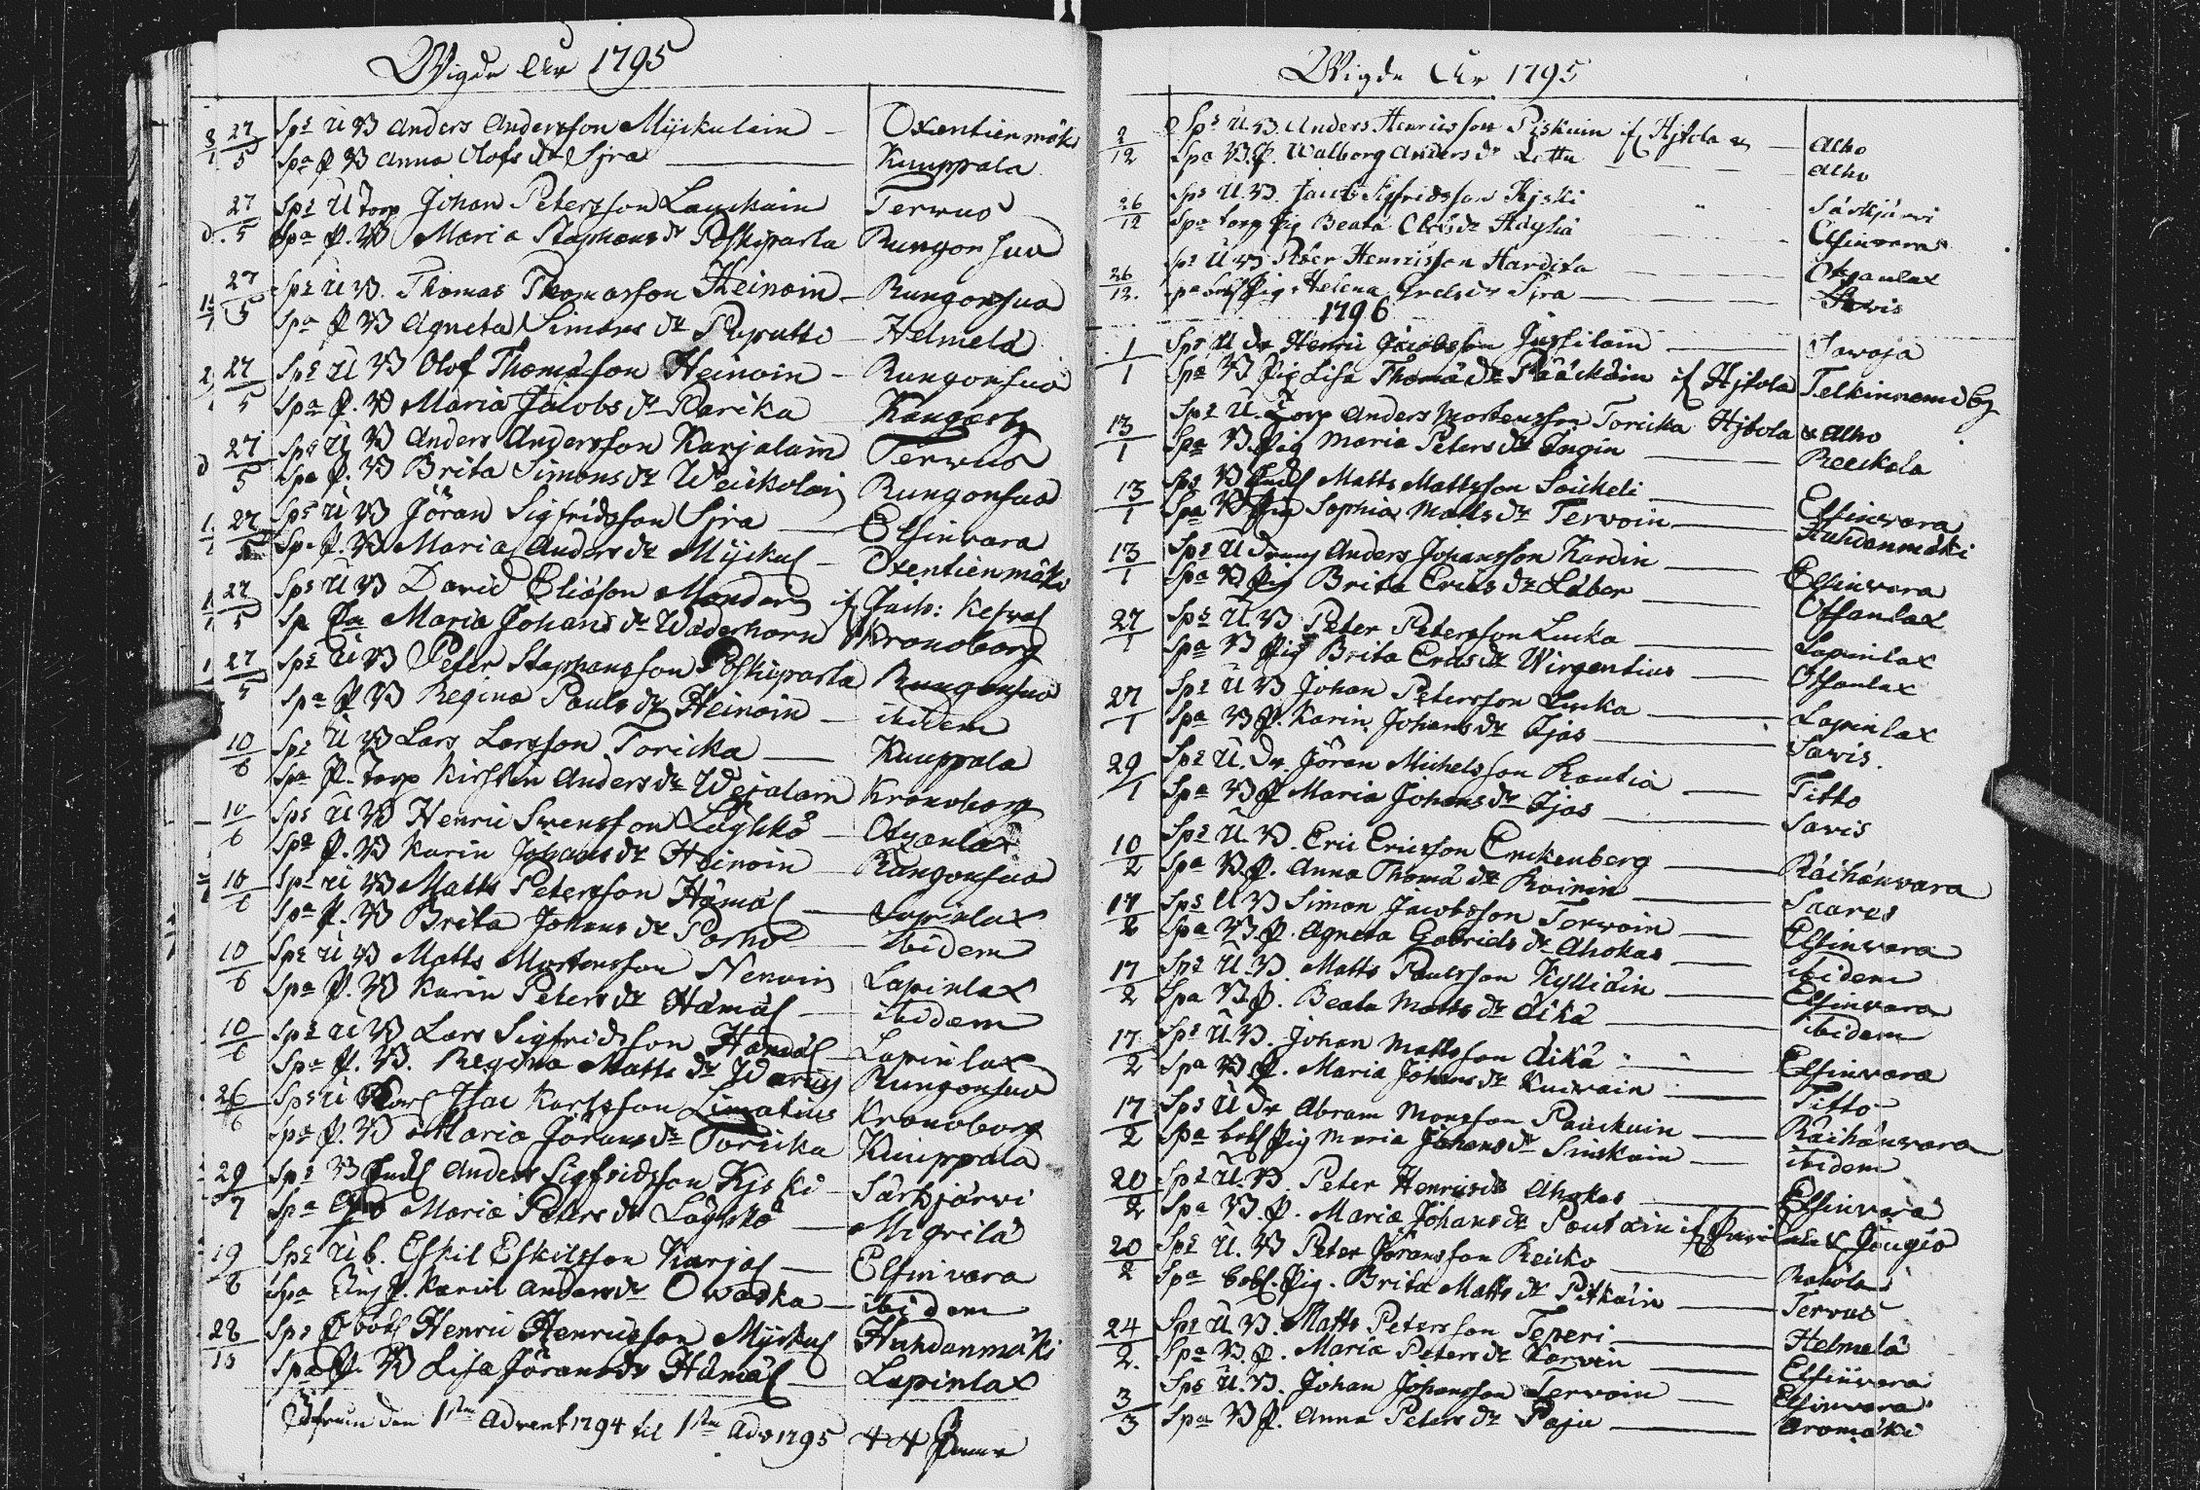 Wigde År 1795
27/5 Spn U B Anders Andersson Myckulain – Oxentienmäki
Spa P B Anna Olofs dr Sjra – Kuuppala
27/5 Spn U Torp Johan Petersson Lauckain Terwus
Spa P. B Maria Staphans dr Poskiparta Rungonsuo
27/5 Spn U B. Thomas Thomasson Heinoin – Rungonsuo
Spa P B Agneta Simons dr Reputti – Helmelä
27/5 Spn U B Olof Thomasson Heinoin – Rungonsuo
Spa P. B Maria Jacobs dr Parika Kangasby
27/5 Spn U B Anders Andersson Karjalain Terwus
Spa P. B Brita Simons dr Weickolain Rungonsuo
27/5 Spn U B Jöran Sigfridsson Sjra – Elfinvara
Spa P. B Maria Anders dr Myckul – Oxentienmäki
27/5 Spn U B David Eliasson Mander
Maria Johans dr Waderhorn Kronoborg
27/5 Spn U B Peter Staphansson Poskiparta Rungonsuo
Spa P B Regina Pauls dr Heinoin – ibidem
10/6 Spn U B Lars Larsson Toricka – Kuuppala
Spa P. Torp Kirstin Anders dr Wejalain Kronoborg
10/6 Spn U B Henric Svensson Läghkö – Otsanlax
Spa P. B Karin Johans dr Heinoin – Rungonsuo
10/6 Spn U B Matts Petersson Hämäl – Lapinlax
Spa P. B Brita Johans dr Porho – ibidem
10/6 Spn U B Matts Mortensson Nenoin Lapinlax
Spa P. B Karin Peters dr Hämäl – ibidem
10/6 Spn U B Lars Sigfridsson Hämäl – Lapinlax
Spa P. B. Regina Matts dr Warius Rungonsuo
26/6 Spn U Isac Karlsson Limatius Kronoborg
Spa P. B Maria Jörans dr Toricka Kuuppala
29/7 Spn B Anders Sigfridsson Kjski – Särkjärvi
Spa Maria Peters dr Läghkö – Migrilä
19/8 Spn U b. Eskil Eskilsson Karjal – Elfinvara
Spa P. Karin Anders dr Owaska – ibidem
28/10 Spn Henric Henricsson Myckul Huhdanmäki
Spa P. B Lisa Jörans dr Hämäl – Lapinlax
Ifrån den 1sta Advent 1794 til 1sta Adv 1795 44 Paar
Wigde År 1795
2/12 Spn U. B. Anders Henricsson Piskuin if Hjtola – Alho
Spa B. P. Walborg Anders dr Lettu – Alho
26/12 Spn U. B. Jacob Sigfridsson Kjski Särkjärvi
Spa torp Pig Beata Olofs dr Häghiä Elfinvara
26/12 Spn U B Peer Henricsson Hardika Otsanlax
Spa Pig Helena dr Sjra – Savis
1796
1/1 Spn U dr Henric Jacobsson Jussilain – Savoja
Spa B Pig Lisa Thomæ dr Pääckäin if Hjtola Telkinniemi by
13/1 Spn U. Torp Anders Mortensson Toricka Hjtola & Alho
Spa B. Pig Maria Peters dr Ingin – Reuskola
13/1 Spn B Matts Mattsson Soickeli – Elfinvara
Spa B Pig Sophia Matts dr Tervoin – Huhdanmäki
13/1 Spn U dräng Anders Johansson Kardin – Elfinvara
Spa B. Pig Brita Erics dr Läber – Otsanlax
27/1 Spn U. B Peter Petersson Lucka – Lapinlax
Spa B Pig Brita Erics dr Wirgentius – Otsanlax
27/1 Spn U B Johan Petersson Lucka – Lapinlax
Spa B P. Karin Johans dr Ijas – Savis.
29/1 Spn U. dr. Jöran Michelsson Rautia – Titto
Spa B P Maria Johans dr Ijas – Savis
10/2 Spn U. B. Eric Ericsson Enckenberg – Räihänvara
Spa B. P. Anna Thomæ dr Roinin – Saares
17/2 Spn U B Simon Jacobsson Torwoin – Elfinvara
Spa B. P. Agneta Gabriels dr Ahokas – ibidem
17/2 Spn U. B. Matts Paulsson Kylliäin – Elfinvara
Spa B. P. Beata Matts dr Äikä – ibidem
17/2 Spn U. B. Johan Mattsson Äikä " " Elfinvara
Spa B P. Maria Johans dr Kuivain – Titto
17/2 Spn U dr Abram Monsson Pauckuin – Räihänvara
Spa Pig Maria Johans dr Sinskain – ibidem
20/2 Spn U. B. Peter Henrics Ahokas – Elfinvara
Spa B. P. Maria Johans dr Pautain
20/2 Spn U. B Peter Jöransson Reuko – Rahola
Spa Pig. Brita Matts dr Pitkäin – Tervus
24/2. Spn U. B. Matts Petersson Teperi – Helmelä
Spa B. P. Maria Peters dr Korvin – Elfinvara
3/3 Spn U. B. Johan Johansson Tervoin – Elfinvara
Spa B P. Anna Peters dr Paju – Aromäki